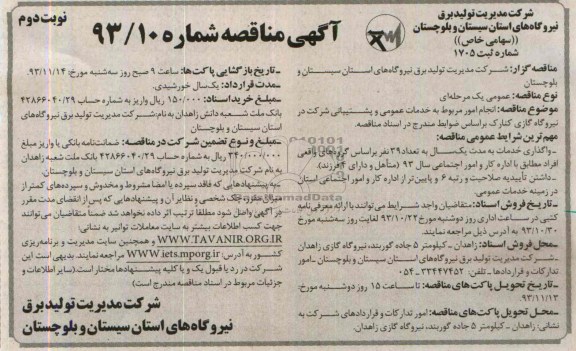 نوبت دوم
آگهی مناقصه شماره ۹۳/۱۰
شرکت مدیریت تولید برق
نیروگاه‌های استان سیستان و بلوچستان
((سهامی خاص))
شماره ثبت ۱۷۰۵
مناقصه گزار: شرکت مدیریت تولید برق نیروگاه‌های استان سیستان و
بلوچستان
نوع مناقصه: عمومی یک مرحله‌ای
موضوع مناقصه: انجام امور مربوط به خدمات عمومی و پشتیبانی شرکت در
نیروگاه گازی کنارک براساس ضوابط مندرج در اسناد مناقصه.
مهم‌ترین شرایط عمومی مناقصه:
ـ واگذاری خدمات به مدت یکسال به تعداد ۳۹ نفر براساس گروه‌های واقعی
افراد مطابق با اداره کار و امور اجتماعی سال ۹۳ (متأهل و دارای ۲ فرزند).
ـ داشتن تأییدیه صلاحیت و رتبه ۶ و پایین‌تر از اداره کار و امور اجتماعی استان
در زمینه خدمات عمومی.
ـ تاریخ فروش اسناد: متقاضیان واجد شرایط می‌توانند با ارائه معرفی‌نامه
کتبی در ساعت اداری روز دوشنبه مورخ ۹۳/۱۰/۲۲ لغایت روز سه‌شنبه مورخ
۹۳/۱۰/۳۰ به آدرس ذیل مراجعه نمایند.
ـ محل فروش اسناد: زاهدان - کیلومتر ۵ جاده گوربند، نیروگاه گازی زاهدان
ـ شرکت مدیریت تولید برق نیروگاه‌های استان سیستان و بلوچستان - امور
تدارکات و قراردادها - تلفن: ۳۳۴۴۷۴۵۲ - ۰۵۴
ـ تاریخ تحویل پاکت‌های مناقصه: تا ساعت ۱۵ روز دوشنبه مورخ:
۹۳/۱۱/۱۳
ـ محل تحویل پاکت‌های مناقصه: امور تدارکات و قراردادهای شرکت به
نشانی: زاهدان - کیلومتر ۵ جاده گوربند، نیروگاه گازی زاهدان.
ـ تاریخ بازگشایی پاکت‌ها: ساعت ۹ صبح روز سه‌شنبه مورخ: ۹۳/۱۱/۱۴
ـ مدت قرارداد: یک‌سال خورشیدی.
ـ مبلغ خرید اسناد: ۱۵۰/۰۰۰ ریال واریز به شماره حساب ۴۲۸۶۶۰۴۰/۲۹
بانک ملت شعبه دانش زاهدان به نام شرکت مدیریت تولید برق نیروگاه‌های
استان سیستان و بلوچستان
ـ مبلغ و نوع تضمین شرکت در مناقصه: ضمانت‌نامه بانکی یا واریز مبلغ
۳۴۰/۰۰۰/۰۰۰ ریال به شماره حساب ۴۲۸۶۶۰۴۰/۲۹ بانک ملت شعبه زاهدان
به نام شرکت مدیریت تولید برق نیروگاه‌های استان سیستان و بلوچستان.
ـ به پیشنهادهایی که فاقد سپرده یا امضا مشروط و مخدوش و سپرده‌های کمتر از
میزان مقرر، چک شخصی و نظایر آن و پیشنهادهایی که پس از انقضای مدت مقرر
در آگهی واصل شود مطلقا ترتیب اثر داده نخواهد شد ضمنا متقاضیان می‌توانند
جهت کسب اطلاعات بیشتر به سایت معاملات توانیر به نشانی:
WWW.TAVANIR.ORG.IR و همچنین سایت مدیریت و برنامه‌ریزی
کشور به آدرس: www.iets.mporg.ir مراجعه نمایند. بدیهی است این
شرکت در رد یا قبول یک و یا کلیه پیشنهادها مختار است. (سایر اطلاعات و
جزئیات مربوط در اسناد مناقصه مندرج است)
شرکت مدیریت تولید برق
نیروگاه‌های استان سیستان و بلوچستان